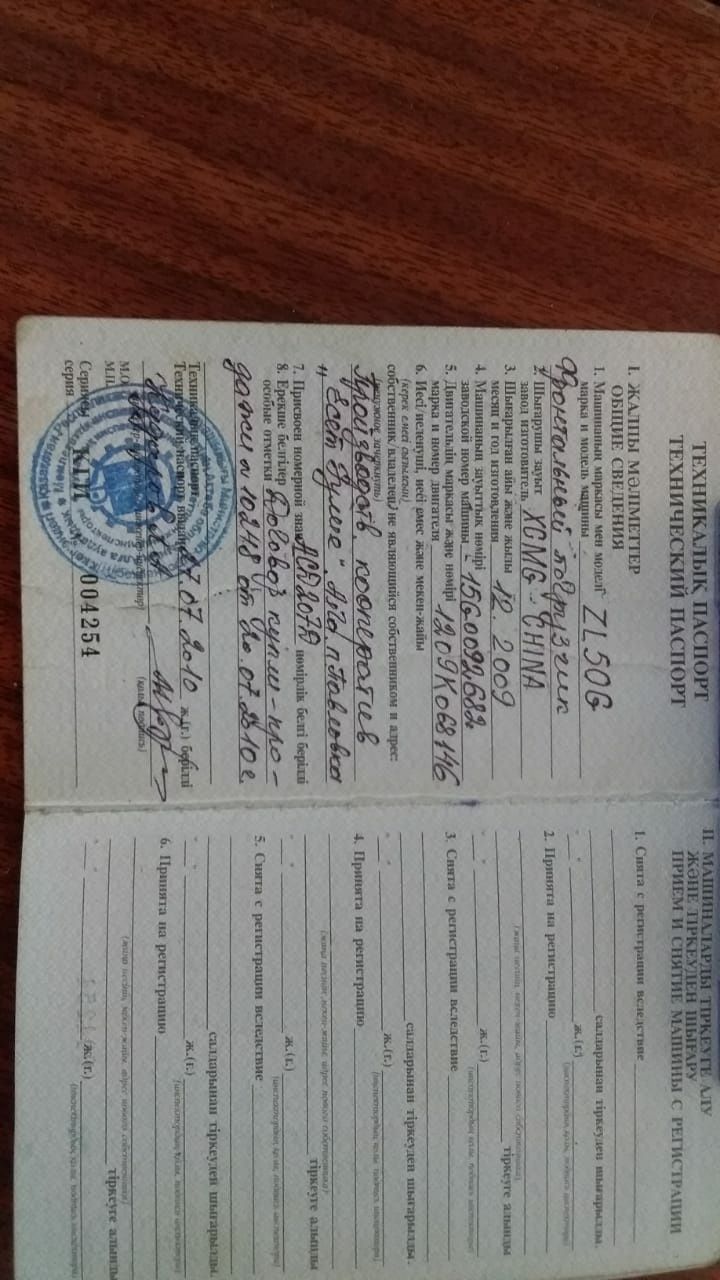 ТЕХНИКАЛЫҚ ПАСПОРТ
ТЕХНИЧЕСКИЙ ПАСПОРТ
I. ЖАЛПЫ МӘЛІМЕТТЕР
ОБЩИЕ СВЕДЕНИЯ
1. Машинаның маркасы мен моделі
марка и модель машины ZL50G
Фронтальный погрузчик
2. Шығарушы зауыт
завод изготовитель XCMG - CHINA
3. Шығарылған айы және жылы
месяц и год изготовления 12. 2009
4. Машинаның зауыттық нөмірі
заводской номер машины 15G0092682
5. Двигательдің маркасы және нөмірі
марка и номер двигателя 1209K068146
6. Иесі/иеленуші, иесі емес және мекен-жайы
(керек емесі сызылсын)
собственник, владелец/не являющийся собственником и адрес
(ненужное зачеркнуть)
Производств. кооператив
"Есет Думше"
7. Присвоен номерной знак ACD207D нөмірлік белгі берілді
8. Ерекше белгілер
особые отметки Договор купли-про-
дажи № 10248 от 20.07.2010 г.
Техникалық паспорт
Технический паспорт выдан 27.07.2010 ж.(г.) берілді
(қолы, подпись)
М.О.
М.П.
Сериясы
серия KLA 004254
II. МАШИНАЛАРДЫ ТІРКЕУГЕ АЛУ
ЖӘНЕ ТІРКЕУДЕН ШЫҒАРУ
ПРИЕМ И СНЯТИЕ МАШИНЫ С РЕГИСТРАЦИИ
1. Снята с регистрации вследствие
салдарынан тіркеуден шығарылды.
ж.(г.)
2. Принята на регистрацию
тіркеуге алынды
ж.(г.)
3. Снята с регистрации вследствие
салдарынан тіркеуден шығарылды.
ж.(г.)
4. Принята на регистрацию
тіркеуге алынды
ж.(г.)
5. Снята с регистрации вследствие
салдарынан тіркеуден шығарылды.
ж.(г.)
6. Принята на регистрацию
тіркеуге алынды
ж.(г.)